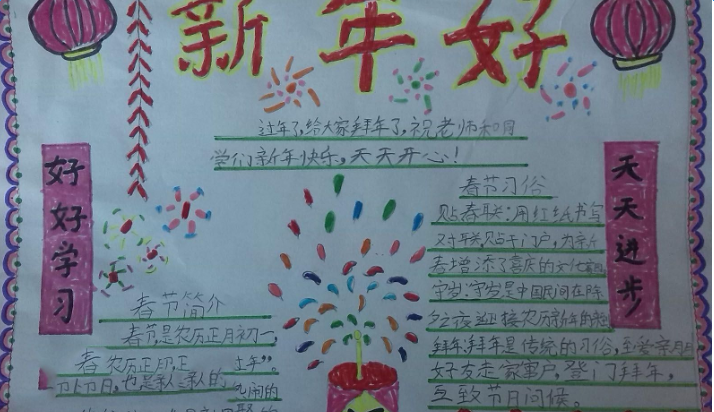 新年好
过年了,给大家拜年了,祝老师和同
学们新年快乐,天天开心!
好好学习
天天进步
春节简介
春节是农历正月初一,
春节习俗
贴春联:用红纸书写
对联,贴于门户,为新
春增添了喜庆的文化
守岁:守岁是中国民间在除
夕夜迎接农历新年的
拜年:拜年是传统的习俗,至爱亲
好友走家串户,登门拜年,
互致节日问候。